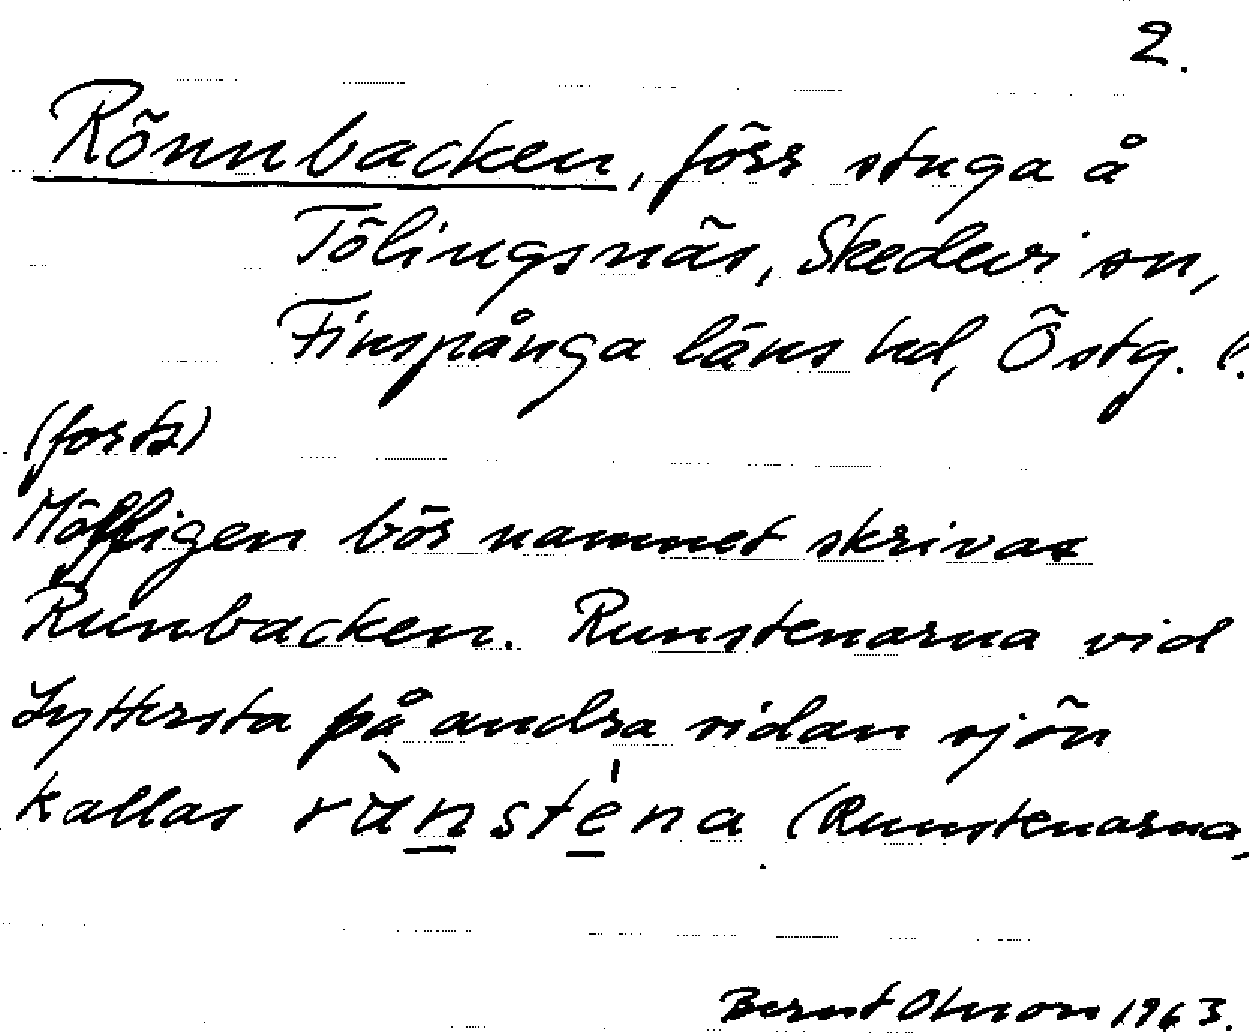 2.
Rönnbacken, förr stuga å
Tölingsnäs, Skedevi sn,
Finspånga läns hd, Östg. l.
(forts)
Möjligen bör namnet skrivas
Runbacken. Runstenarna vid
Lyttersta på andra sidan sjön
kallas rùnsténa (Runstenarna,
Bernt Olsson 1963.